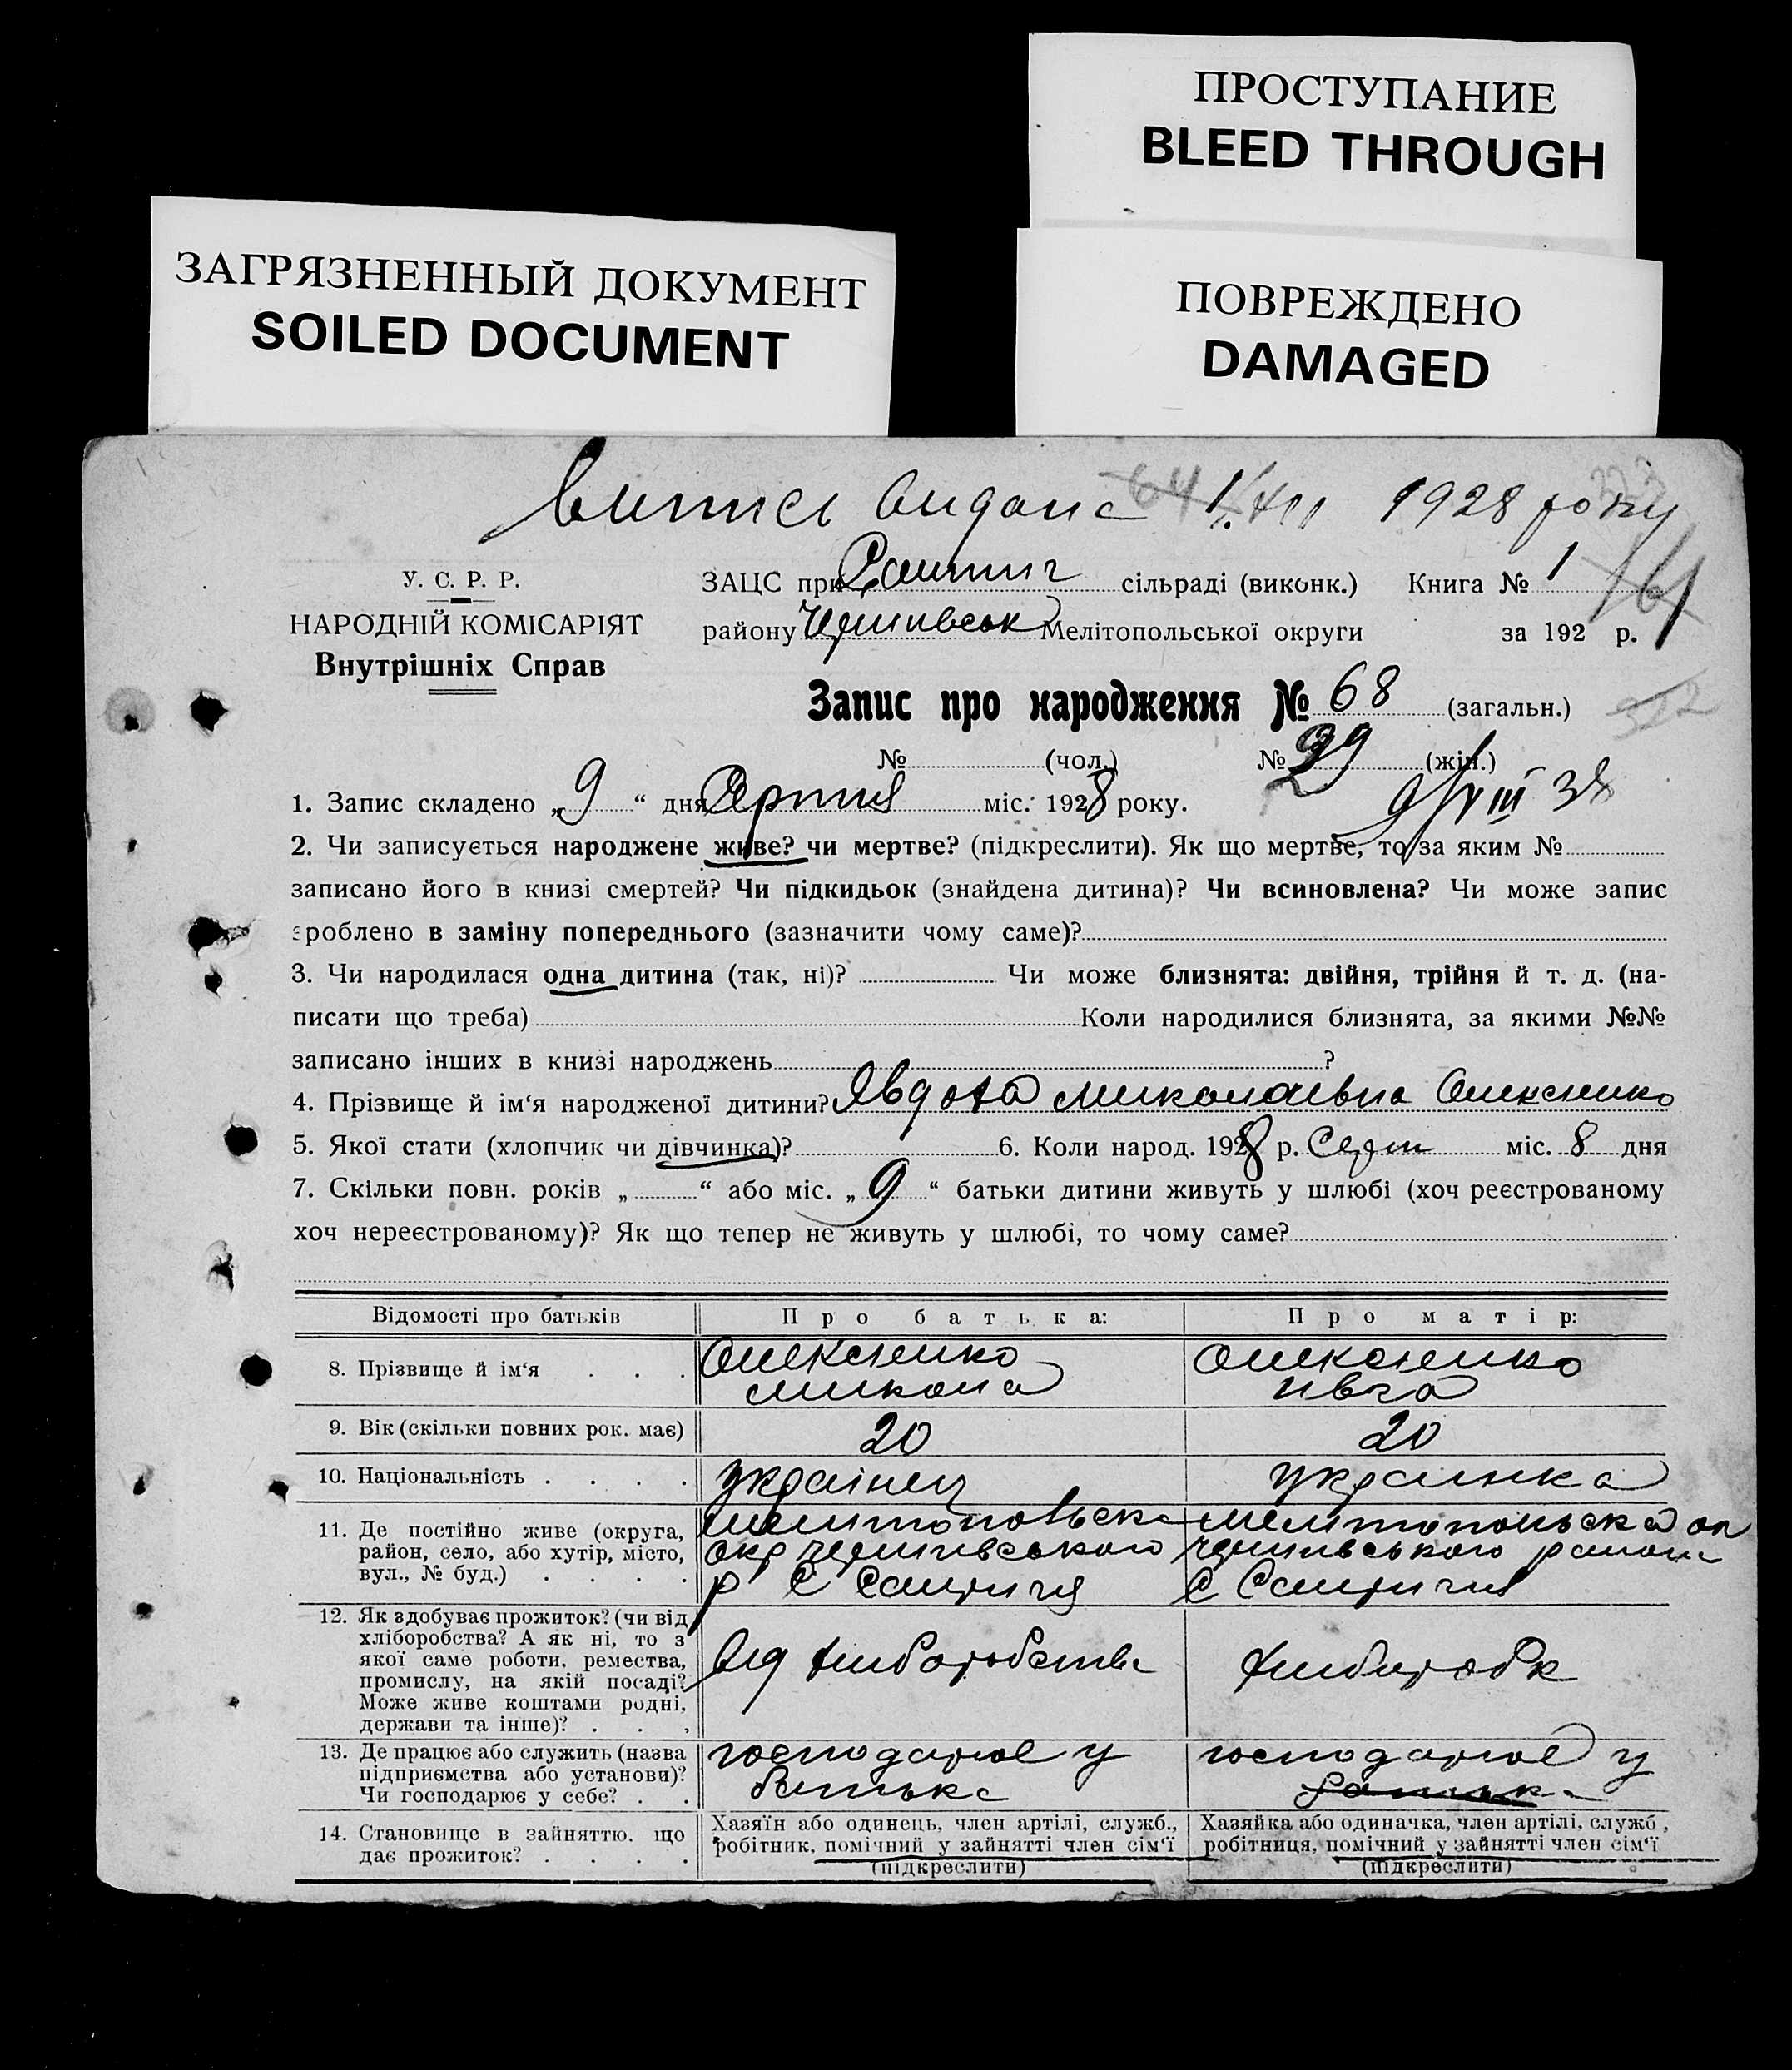 ПРОСТУПАНИЕ
BLEED THROUGH
ЗАГРЯЗНЕННЫЙ ДОКУМЕНТ
SOILED DOCUMENT
ПОВРЕЖДЕНО
DAMAGED
Випись видана 1928 року
У. С. Р. Р.
НАРОДНІЙ КОМІСАРІЯТ
Внутрішніх Справ
ЗАЦС при сільраді (виконк.) Книга № 1
району Мелітопольської округи за 192 р.
Запис про народження № 68 (загальн.)
№ (чол.) № 39 (жін.)
1. Запис складено „9“ дня Серпня міс. 1928 року.
2. Чи записується народжене живе? чи мертве? (підкреслити). Як що мертве, то за яким №
записано його в книзі смертей? Чи підкидьок (знайдена дитина)? Чи всиновлена? Чи може запис
зроблено в заміну попереднього (зазначити чому саме)?
3. Чи народилася одна дитина (так, ні)? Чи може близнята: двійня, трійня й т. д. (на-
писати що треба) Коли народилися близнята, за якими №№
записано інших в книзі народжень ?
4. Прізвище й ім‘я народженої дитини? Явдоха Миколаівна Олексенко
5. Якої стати (хлопчик чи дівчинка)? 6. Коли народ. 1928 р. Серп міс. 8 дня
7. Скільки повн. років „ “ або міс. „9“ батьки дитини живуть у шлюбі (хоч реєстрованому
хоч нереєстрованому)? Як що тепер не живуть у шлюбі, то чому саме?
Відомості про батьків Про батька: Про матір:
8. Прізвище й ім‘я . . . Олексенко Микола Олексенко Ивга
9. Вік (скільки повних рок. має) 20 20
10. Національність . . . . украінец украинка
11. Де постійно живе (округа, Мелитопольска Мелитопольска ок
район, село, або хутір, місто, окр району
вул., № буд.) . . . . р С С
12. Як здобуває прожиток? (чи від
хліборобства? А як ні, то з
якої саме роботи, ремества, від хлиборобства хлибороб
промислу, на якій посаді?
Може живе коштами родні,
держави та інше)? . . .
13. Де працює або служить (назва господарює у господарює у
підприємства або установи)? батька батька
Чи господарює у себе? . .
14. Становище в зайняттю, що Хазяїн або одинець, член артілі, служб., Хазяйка або одиначка, член артілі, служб.,
дає прожиток? . . . . робітник, помічний у зайнятті член сім‘ї робітниця, помічний у зайнятті член сім‘ї
(підкреслити) (підкреслити)